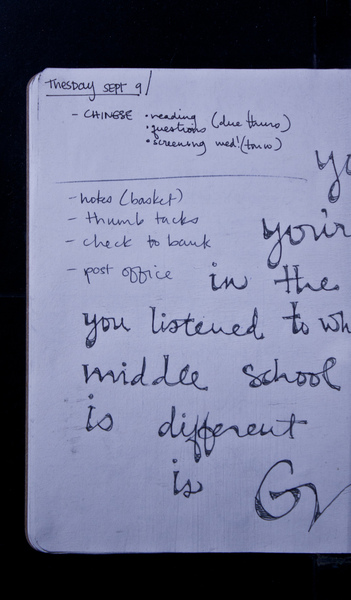 Tuesday SEPT 9
- CHINESE • reading (due thurs)
• questions
• screening wed! (tomo)
- notes (basket)
- thumb tacks
- check to bank
- post office
yo
you'r
in the
you listened to wh
middle school
is different
is Gr